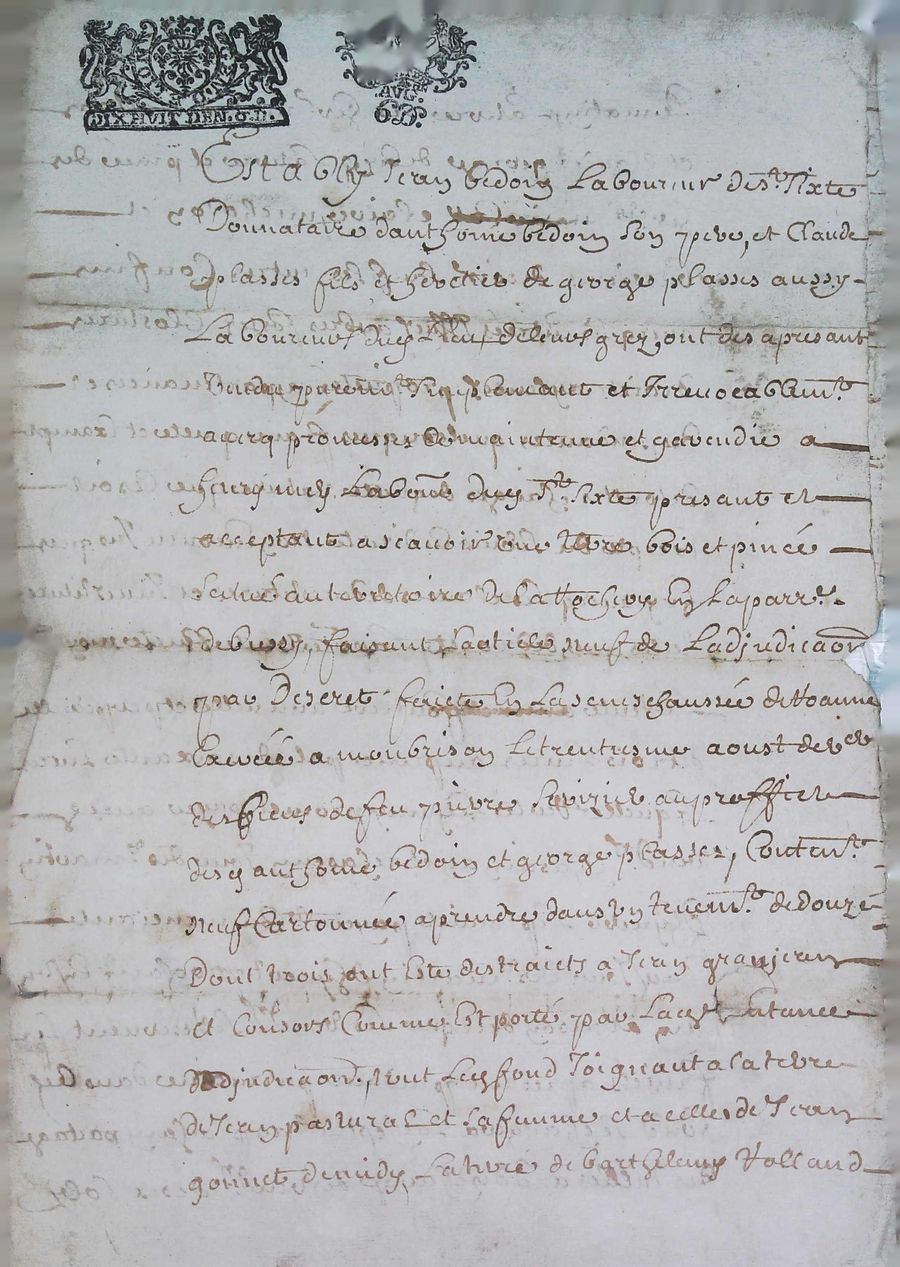 DIX HUIT DEN. 6.D.
AVG.
6D.
Estably Jean bedoin Laboureur de st. Sixte
Donnataire d'anthoine bedoin son pere, et Claude
plasses fils et heretier de george plasses aussy
Laboureurs du lieu de grez, ont des apresant
vendu purem.t Simplement et Irrevocablem.t
avecq promesses de maintenue et garendie a
Labour du St. Sixte presant et
acceptant ascavoir une terre bois et pinée
scitué au terretoire de En la parr.e
de bussy, faisant Larticle neuf de Ladjudicaon
par Decret faicte En La seneschaussée de Roanne
a monbrison Le trentiesme aoust der.er
des biens de feu pierre au proffict
desd anthoine bedoin et george plasses, Conten.t
neuf Cartonnée aprendre dans un tenem.t de douze
Dont trois ont Esté destraicts a Jean granjean
et Consors Comme Est porté par Lad.
dadjudicaon, tout Led fond Joignant a la terre
de Jean pastural et sa femme et a celle de Jean
gonnet de midy, La terre de barthelemy Rolland